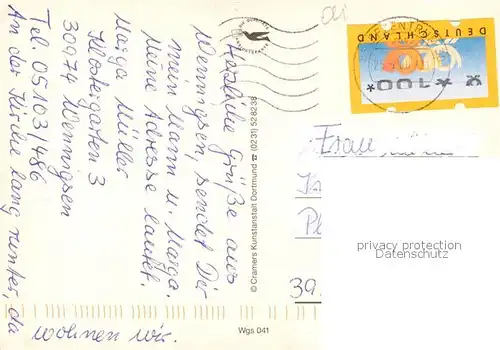 Herzliche Grüße aus
Wennigsen, sendet Dir
mein Mann u. Marga.
Meine Adresse lautet.
Marga Müller
Klostergarten 3
30974 Wennigsen
Tel. 05103/486
An der Kirche lang runter, da
wohnen wir.
© Cramers Kunstanstalt Dortmund ☎ (0231) 528238
Wgs 041
DEUTSCHLAND
***100
Frau
39
privacy protection
Datenschutz